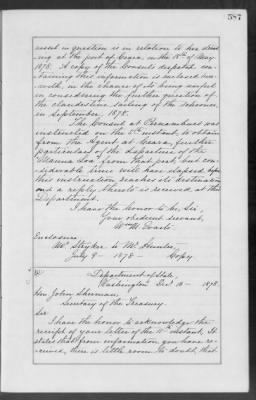 587
ment in question is in relation to her arriv
ing at the port of Ceara, on the 18th of May
1878. A copy of the Consul's dispatch con
taining this information is enclosed here
with, in the chance of its being useful
in considering the further question of
the clandestine sailing of the schooner,
in September, 1878.
The Consul at Pernambuco was
instructed on the instant, to obtain
from the Agent at Ceara, further
particulars of the departure of the
"Mauna Loa" from that port, but con
siderable time will have elapsed before
this instruction reaches its destination
and a reply thereto is received at this
Department.
I have the honor to be, Sir,
Your obedient servant,
Wm M. Evarts.
Enclosure
Mr. Stryker to Mr. Hunter,
July 9 - 1878 - Copy
Department of State,
Washington Dec. 1878.
Hon John Sherman,
Secretary of the Treasury
Sir
I have the honor to acknowledge the
receipt of your letter of the instant. It
states that from information you have re
ceived, there is little room to doubt, that